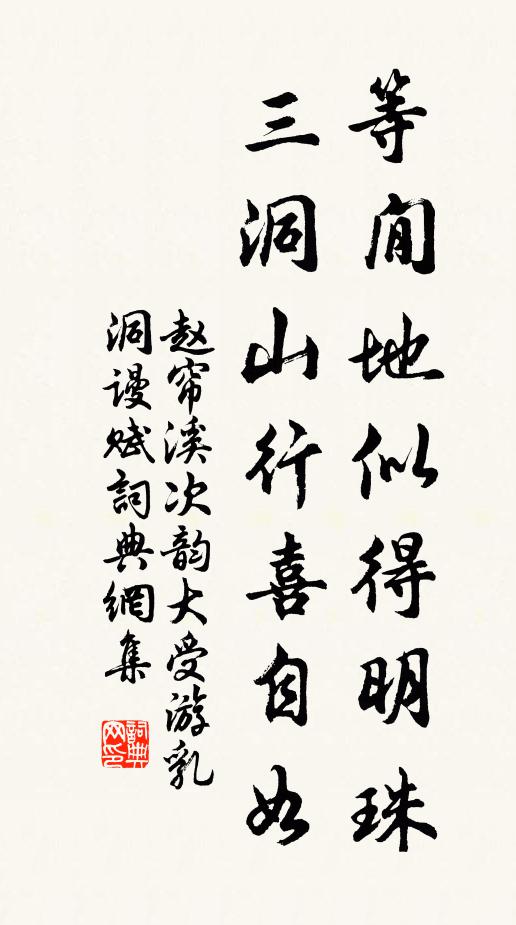 等閒地似得明珠
三洞山行喜自如
赵帘溪次韵大受游乳
洞谩赋詞典網集
詞典網印